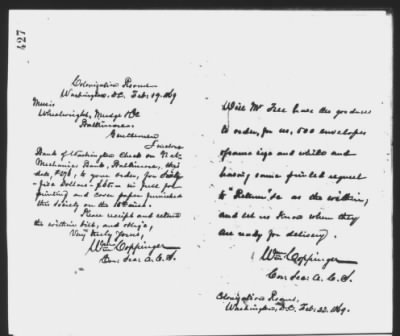 427
Colonization Rooms
Washington, D.C. Feb. 19. 1869
Messrs
Wheelwright, Mudge & Co
Baltimore.
Gentlemen
I enclose
Bank of Washington Check on Nat.
Mechanics Bank, Baltimore, this
date, to your order, for Sixty
five Dollars in full for
printing and cover paper furnished
this Society on the
Please receipt and return
the within bill, and oblige,
Very truly yours,
Wm Coppinger
Cor. Sec: A. C. S.
Will Mr Tree have the goodness
to order, for us, 500 envelopes
of same size and white and
having same printed request
to "Return" &c as the within,
and let us know when they
are ready for delivery.
Wm Coppinger
Cor. Sec: A. C. S.
Colonization Rooms,
Washington, D.C. Feb. 22. 1869.